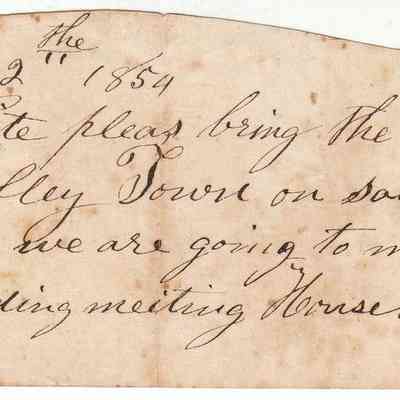 2 the 1854
te pleas bring the
lley Town on sa
we are going to m
ding meiting House